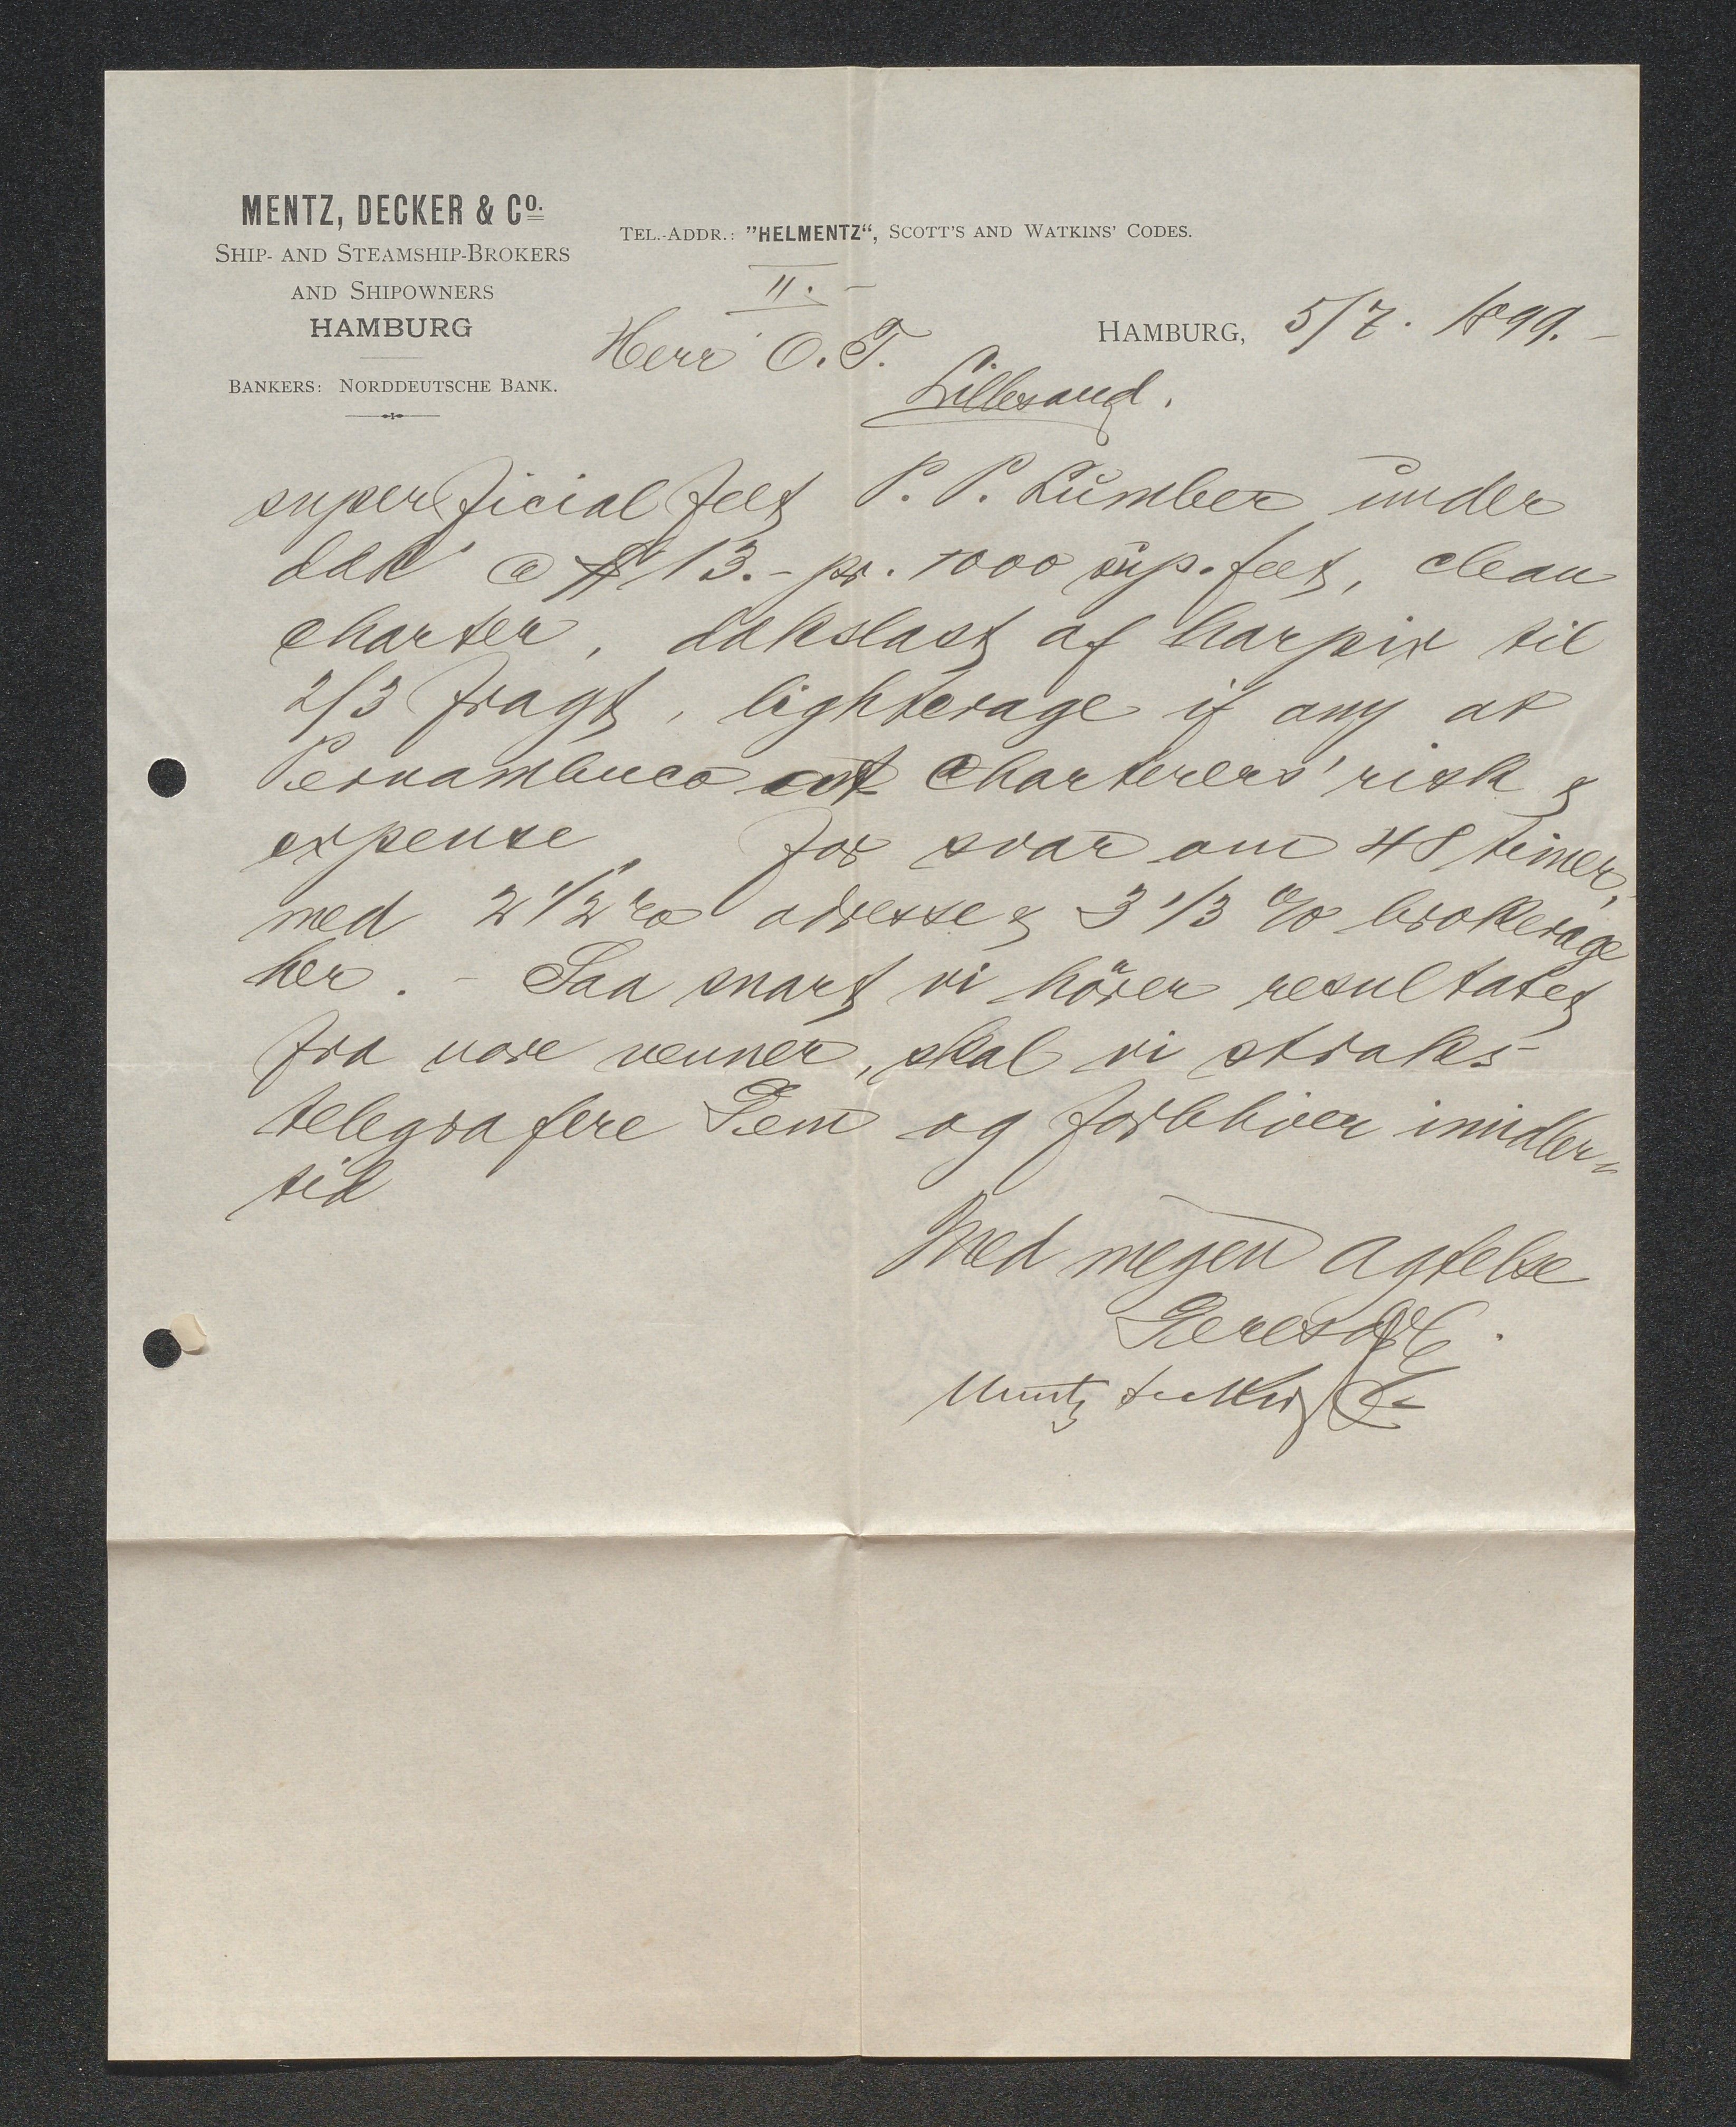 MENTZ, DECKER & Co.
SHIP- AND STEAMSHIP-BROKERS
AND SHIPOWNERS
HAMBURG
BANKERS: NORDDEUTSCHE BANK.
TEL.-ADDR.: "HELMENTZ", SCOTT'S AND WATKINS' CODES.
II.-
HAMBURG, 5/7. 1899.-
Herr O. T.
Lillesand.
superficial feet P. P. Lumber under
dæk @ $ 13.- pr. 1000 sup. feet, clean
charter, dækslast af harpix til
2/3 fragt, lighterage if any at
Pernambuco at Charterers' risk &
expense, for svar om 48 timer,
med 2 1/2 % adresse & 3 1/3 % brokerage
her. - Saa snart vi hörer resultatet
fra vore venner, skal vi straks
telegrafere Dem og forbliver imidler-
tid
Med megen agtelse
Deres
Mentz Decker & Co